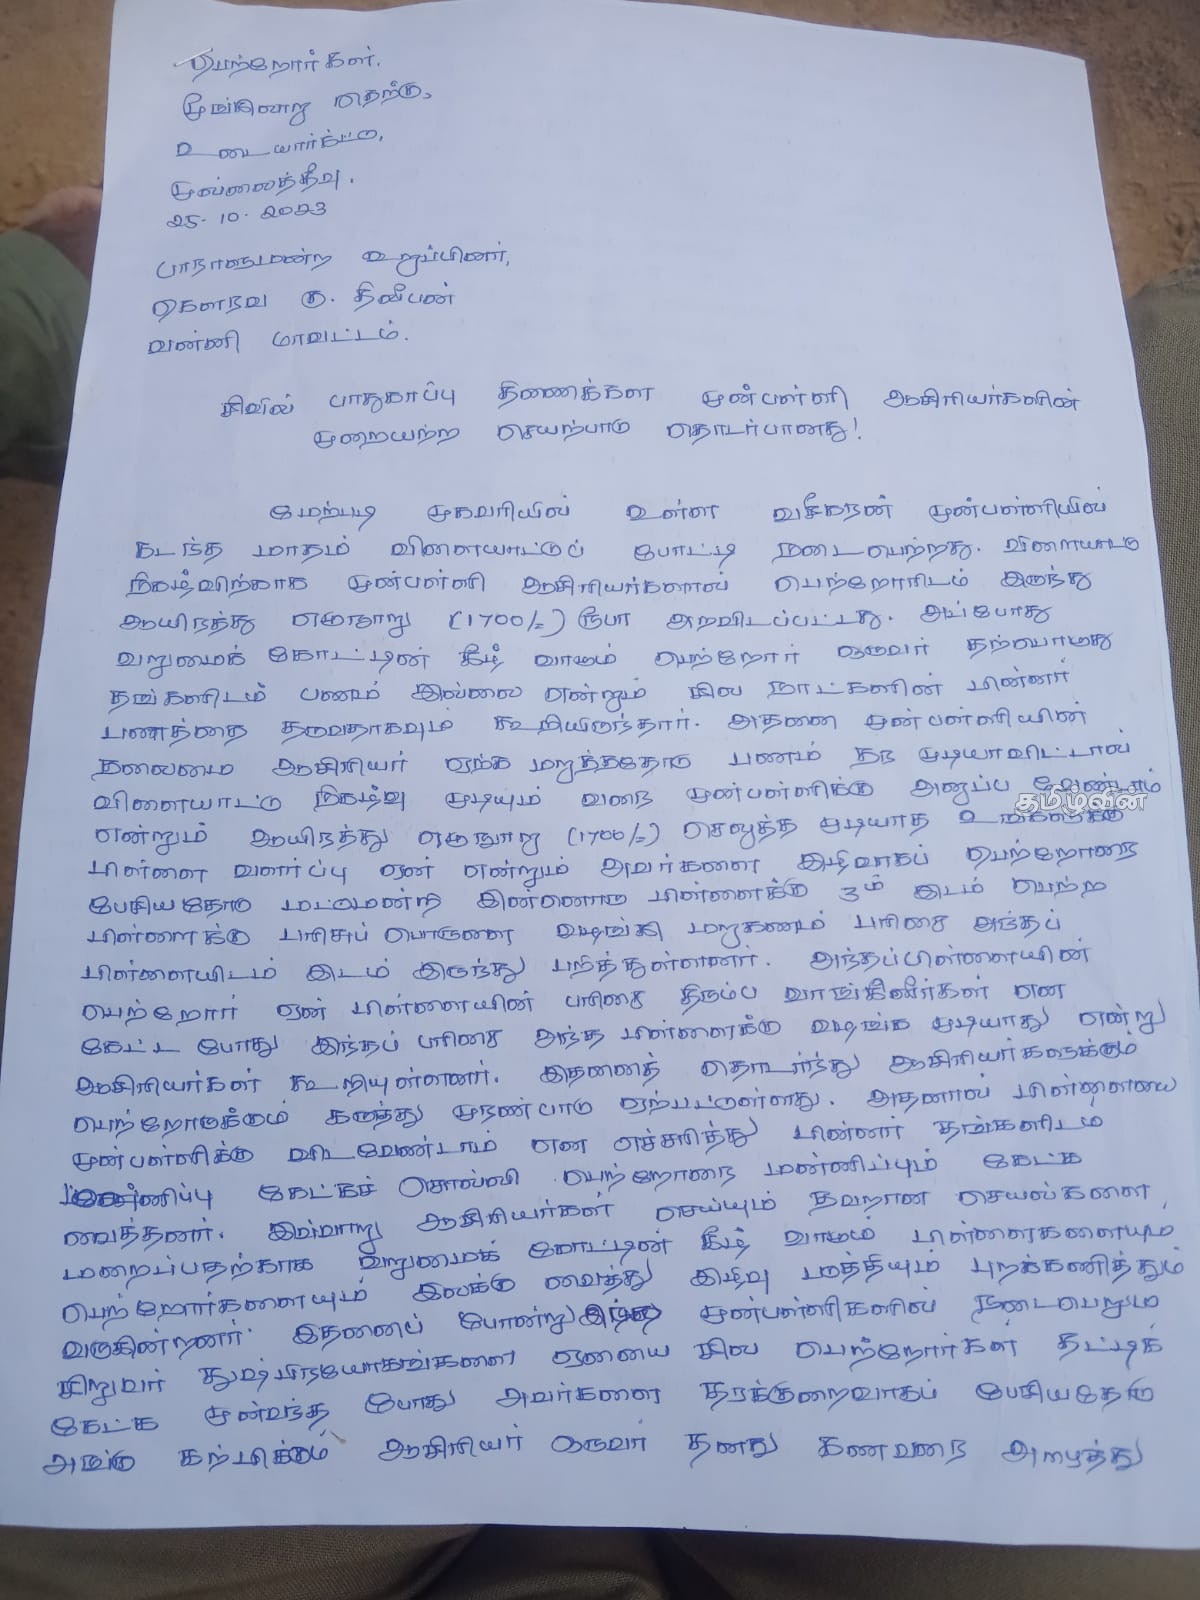 பெற்றோர்கள்.
மூங்கிலாறு தெற்கு,
உடையார்கட்டு,
முல்லைத்தீவு.
25.10.2023
பாராளுமன்ற உறுப்பினர்,
கௌரவ கு. திலீபன்
வன்னி மாவட்டம்.
சிவில் பாதுகாப்பு திணைக்கள முன்பள்ளி ஆசிரியர்களின்
முறையற்ற செயற்பாடு தொடர்பானது!
மேற்படி முகவரியில் உள்ள வசீகரன் முன்பள்ளியில்
கடந்த மாதம் விளையாட்டுப் போட்டி நடைபெற்றது. விளையாட்டு
நிகழ்விற்காக முன்பள்ளி ஆசிரியர்களால் பெற்றோரிடம் இருந்து
ஆயிரத்து எழுநூறு (1700/=) ரூபா அறவிடப்பட்டது. அப்போது
வறுமைக் கோட்டின் கீழ் வாழும் பெற்றோர் ஒருவர் தற்பொழுது
தங்களிடம் பணம் இல்லை என்றும் சில நாட்களின் பின்னர்
பணத்தை தருவதாகவும் கூறியிருந்தார். அதனை முன்பள்ளியின்
தலைமை ஆசிரியர் ஏற்க மறுத்ததோடு பணம் தர முடியாவிட்டால்
விளையாட்டு நிகழ்வு முடியும் வரை முன்பள்ளிக்கு அனுப்ப வேண்டாம்
தமிழ்வின்
என்றும் ஆயிரத்து எழுநூறு (1700/=) செலுத்த முடியாத உங்களுக்கு
பிள்ளை வளர்ப்பு ஏன் என்றும் அவர்களை இழிவாகப் பெற்றோரை
பேசியதோடு மட்டுமன்றி இன்னொரு பிள்ளைக்கு 3ம் இடம் பெற்ற
பிள்ளைக்கு பரிசுப் பொருளை வழங்கி மறுகணம் பரிசை அந்தப்
பிள்ளையிடம் இடம் இருந்து பறித்துள்ளனர். அந்தப்பிள்ளையின்
பெற்றோர் ஏன் பிள்ளையின் பரிசை திரும்ப வாங்கினீர்கள் என
கேட்ட போது இந்தப் பரிசை அந்த பிள்ளைக்கு வழங்க முடியாது என்று
ஆசிரியர்கள் கூறியுள்ளனர். இதனைத் தொடர்ந்து ஆசிரியர்களுக்கும்
பெற்றோருக்கும் கருத்து முரண்பாடு ஏற்பட்டுள்ளது. அதனால் பிள்ளையை
முன்பள்ளிக்கு விடவேண்டாம் என எச்சரித்து பின்னர் தங்களிடம்
கேட்கச் சொல்லி பெற்றோரை மன்னிப்பும் கேட்க
வைத்தனர். இவ்வாறு ஆசிரியர்கள் செய்யும் தவறான செயல்களை
மறைப்பதற்காக வறுமைக் கோட்டின் கீழ் வாழும் பிள்ளைகளையும்
பெற்றோர்களையும் இலக்கு வைத்து இழிவு படுத்தியும் புறக்கணித்தும்
வருகின்றனர். இதனைப் போன்று முன்பள்ளிகளில் நடைபெறும்
சிறுவர் துஷ்பிரயோகங்களை ஏனைய சில பெற்றோர்கள் தட்டிக்
கேட்க முன்வந்த போது அவர்களை தரக்குறைவாகப் பேசியதோடு
அங்கு கற்பிக்கும் ஆசிரியர் ஒருவர் தனது கணவரை அழைத்து